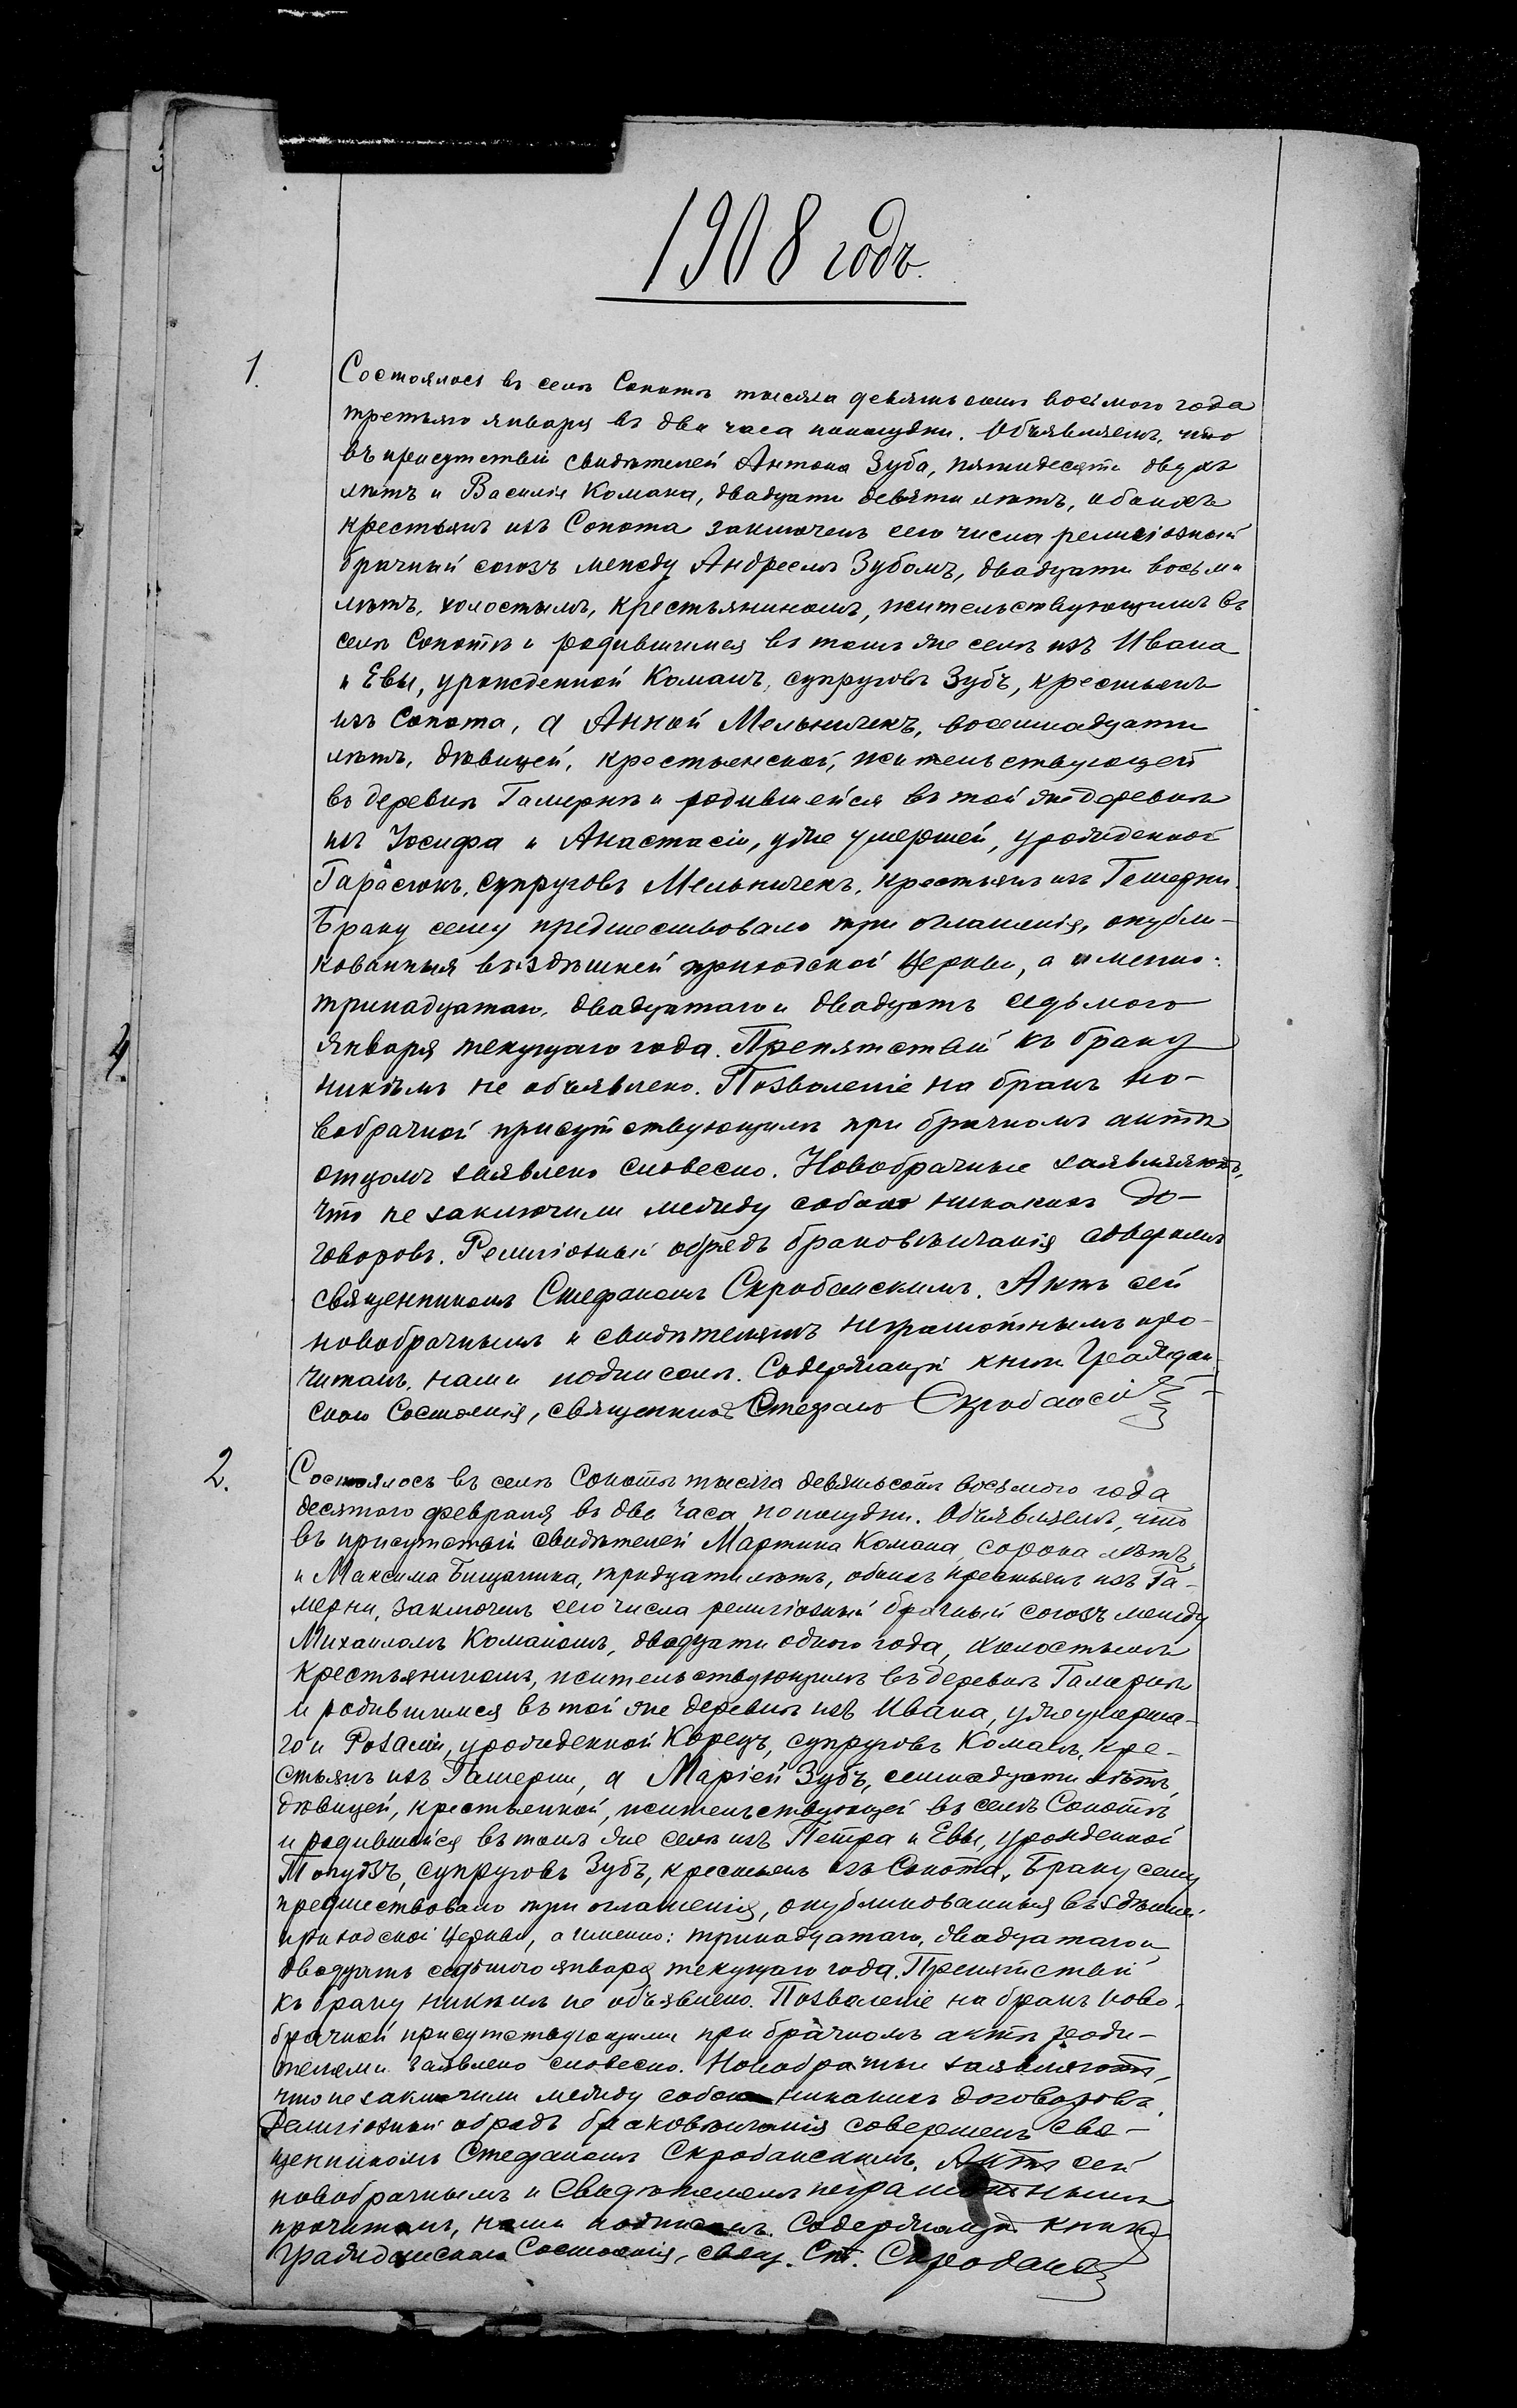 1908 годъ.
1.
Состоялось въ селѣ Сопотѣ тысяча девятьсотъ восьмого года
третьяго января въ два часа пополудни. Объявляемъ, что
въ присутствіи свидѣтелей Антона Зуба, пятидесяти двухъ
лѣтъ и Василія Комана, двадцати девяти лѣтъ, обоихъ
крестьянъ изъ Сопота заключенъ сего числа религіозный
брачный союзъ между Андреемъ Зубомъ, двадцати восьми
лѣтъ, холостымъ, крестьяниномъ, жительствующимъ въ
селѣ Сопотѣ и родившимся въ томъ же селѣ изъ Ивана
и Евы, урожденной Команъ, супруговъ Зубъ, крестьянъ
изъ Сопота, а Анной Мельничекъ, восемнадцати
лѣтъ, дѣвицей, крестьянской, жительствующей
въ деревнѣ Гамернѣ и родившейся въ той же деревнѣ
изъ Іосифа и Анастасіи, уже умершей, урожденной
Гарасюкъ, супруговъ Мельничекъ, крестьянъ изъ Гамерни.
Браку сему предшествовало три оглашенія, опубли-
кованныя въ здѣшней приходской Церкви, а именно:
тринадцатаго, двадцатаго и двадцать седьмого
января текущаго года. Препятствій къ браку
никѣмъ не объявлено. Позволеніе на бракъ но-
вобрачной присутствующимъ при брачномъ актѣ
отцомъ заявлено словесно. Новобрачные заявляютъ,
что не заключили между собою никакихъ до-
говоровъ. Религіозный обрядъ браковѣнчанія совершенъ
священникомъ Стефаномъ Скробанскимъ. Актъ сей
новобрачнымъ и свидѣтелямъ неграмотнымъ про-
читанъ, нами подписанъ. Содержащій книги Граждан-
скаго Состоянія, священникъ Стефанъ Скробанскій
2.
Состоялось въ селѣ Сопотѣ тысяча девятьсотъ восьмого года
десятого февраля въ два часа пополудни. Объявляемъ, что
въ присутствіи свидѣтелей Мартина Комана, сорока лѣтъ,
и Максима Бищаника, тридцати лѣтъ, обоихъ крестьянъ изъ Га-
мерни, заключенъ сего числа религіозный брачный союзъ между
Михаиломъ Команомъ, двадцати одного года, холостымъ
крестьяниномъ, жительствующимъ въ деревнѣ Гамернѣ
и родившимся въ той же деревнѣ изъ Ивана, уже умерша-
го и Розаліи, урожденной Корецъ, супруговъ Команъ, кре-
стьянъ изъ Гамерни, а Маріей Зубъ, семнадцати лѣтъ,
дѣвицей, крестьянкой, жительствующей въ селѣ Сопотѣ
и родившейся въ томъ же селѣ изъ Петра и Евы, урожденной
супруговъ Зубъ, крестьянъ изъ Сопота. Браку сему
предшествовало три оглашенія, опубликованныя въ здѣшней
приходской Церкви, а именно: тринадцатаго, двадцатаго и
двадцать седьмого января текущаго года. Препятствій
къ браку никѣмъ не объявлено. Позволеніе на бракъ ново-
брачной присутствующими при брачномъ актѣ роди-
телями заявлено словесно. Новобрачные заявляютъ,
что не заключили между собою никакихъ договоровъ.
Религіозный обрядъ браковѣнчанія совершенъ свя-
щенникомъ Стефаномъ Скробанскимъ. Актъ сей
новобрачнымъ и свидѣтелямъ неграмотнымъ
прочитанъ, нами подписанъ. Содержащій книги
Гражданскаго Состоянія, свящ. Ст. Скробанс